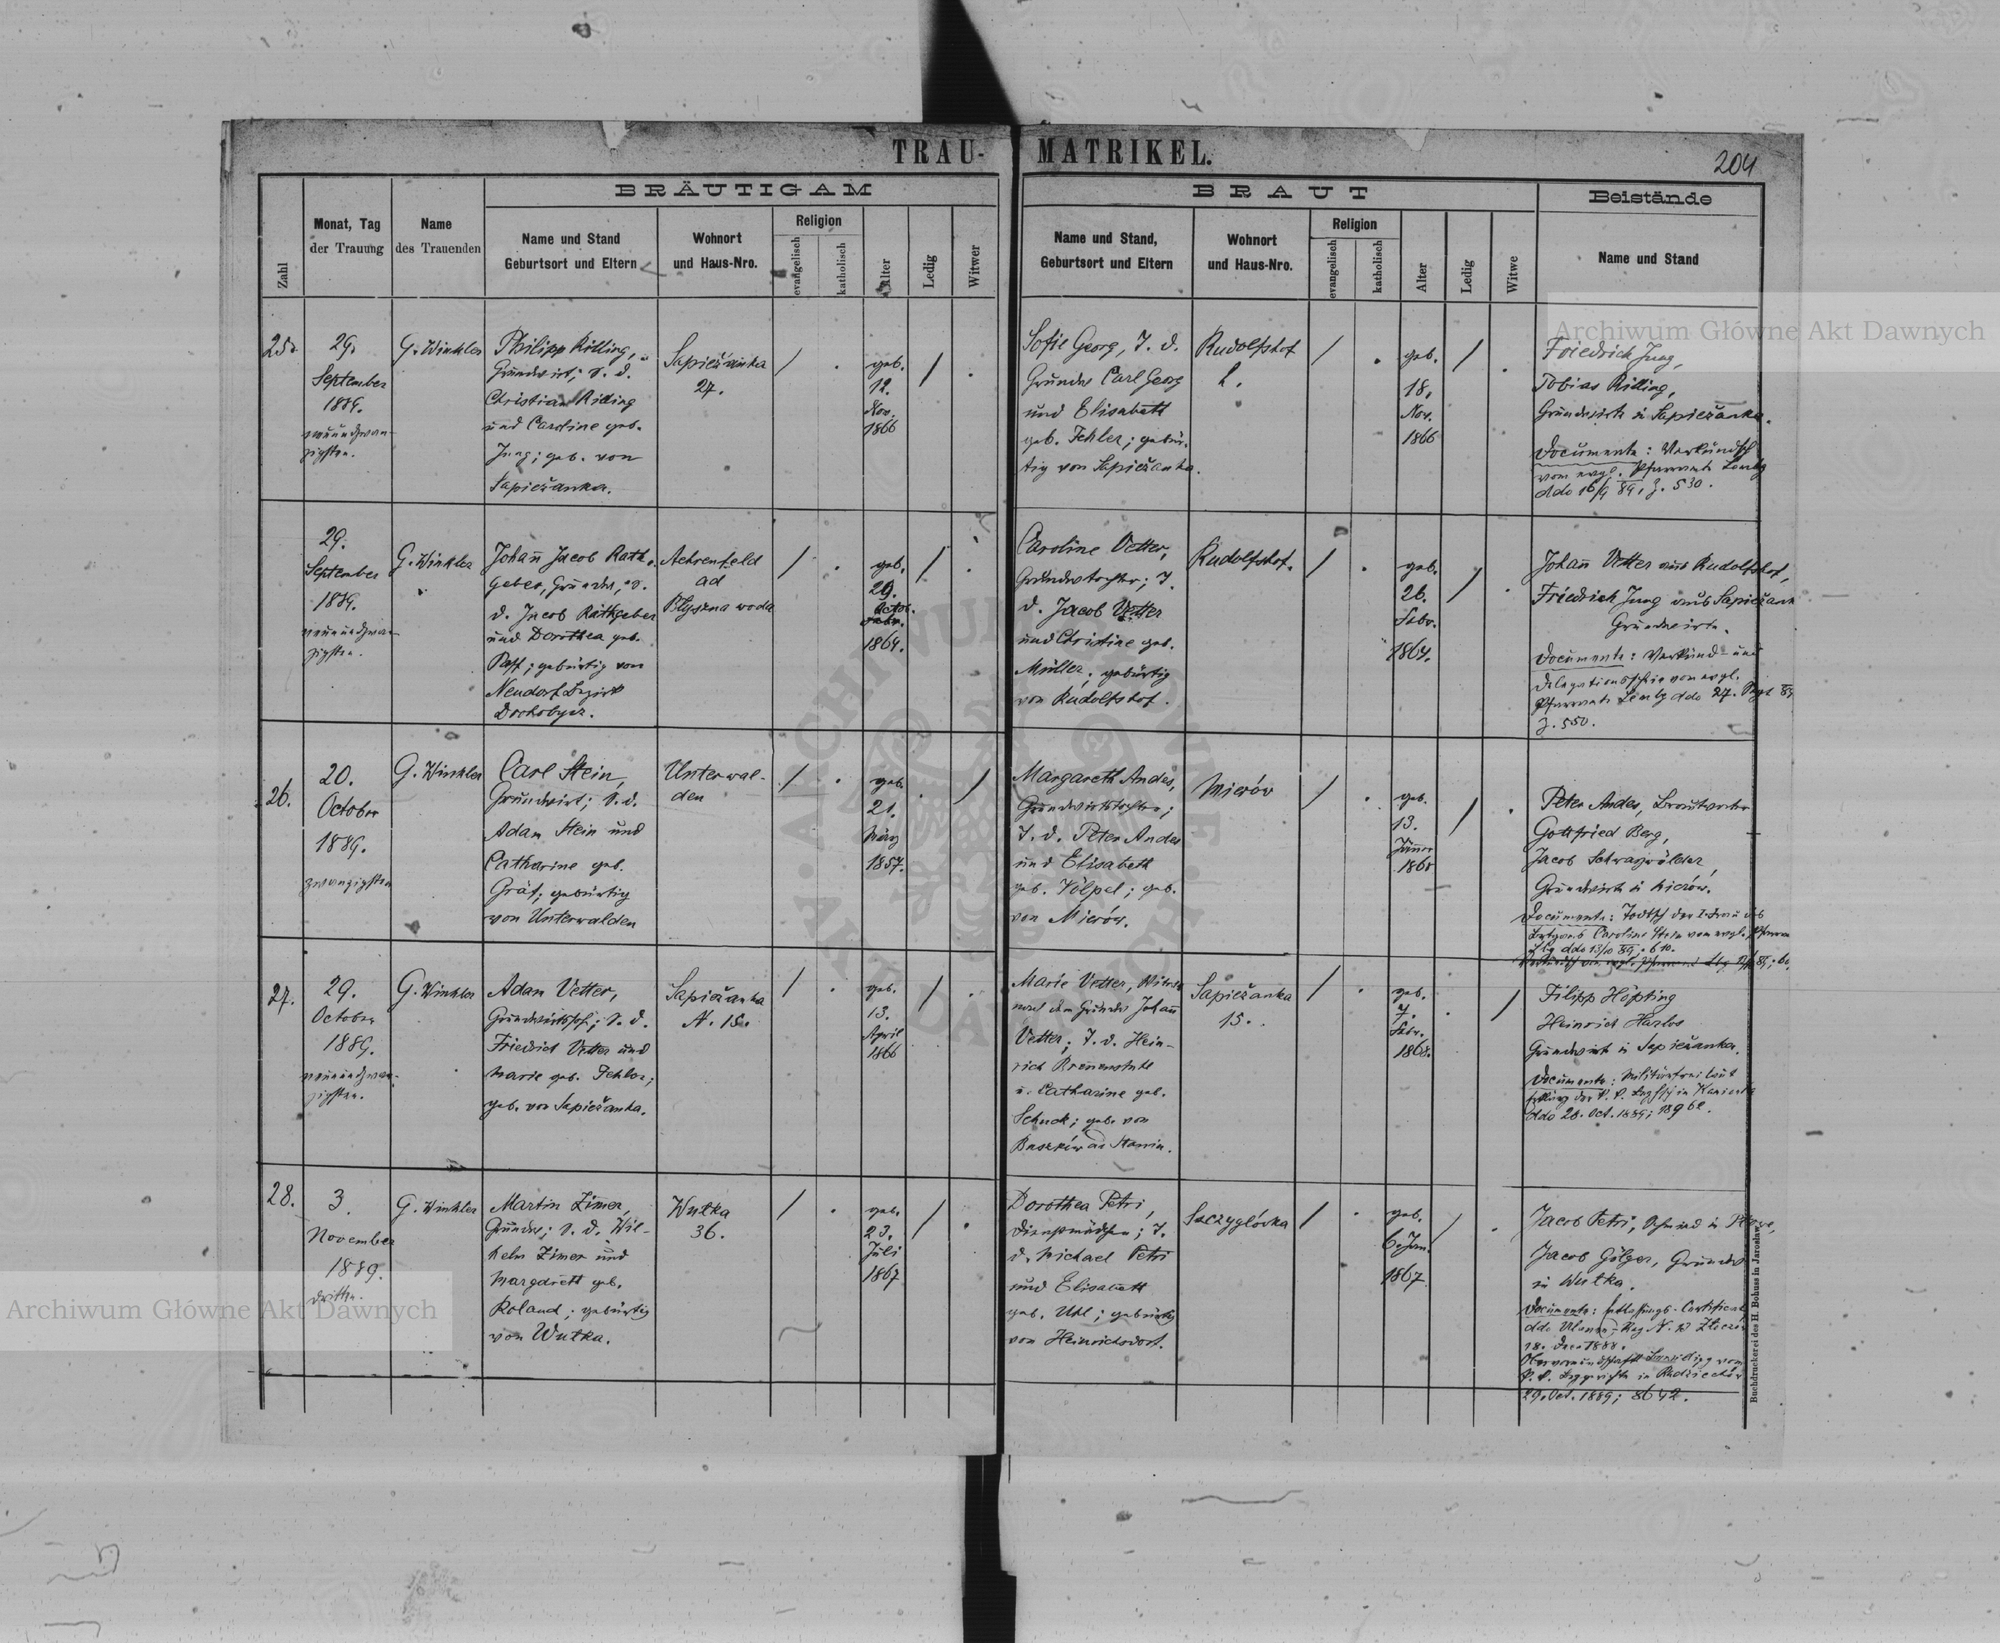 TRAU-MATRIKEL.
204
Zahl
Monat, Tag
der Trauung
Name
des Trauenden
BRÄUTIGAM
Name und Stand
Geburtsort und Eltern
Wohnort
und Haus-Nro.
Religion
evangelisch
katholisch
Alter
Ledig
Witwer
BRAUT
Name und Stand,
Geburtsort und Eltern
Wohnort
und Haus-Nro.
Religion
evangelisch
katholisch
Alter
Ledig
Witwe
Beistände
Name und Stand
25.
29.
September
1889.
neunundzwan-
zigsten.
G. Winkler
Philipp Rilling,
Grundwirt; S. d.
Christian Rilling
und Caroline geb.
Jung; geb. von
Sapieżanka.
Sapieżanka
27.
/
geb.
12.
Nov.
1866
/
Sofie Georg, T. d.
Grundw Carl Georg
und Elisabeth
geb. Fehler; gebür-
tig von Sapieżanka.
Rudolfshof
/
geb.
18.
Nov.
1866
/
Friedrich Jung,
Tobias Rilling,
Grundwirte in Sapieżanka.
Documente: Verkündsch
vom evgl. Pfarramte Lembg
ddo 16/9 89, Z. 530.
29.
September
1889.
neunundzwan-
zigsten.
G. Winkler
Johan̄ Jacob Rath-
geber, Grundw; S.
d. Jacob Rathgeber
und Dorothea geb.
Past; gebürtig von
Neudorf Bezirk
Drohobycz.
Aehrenfeld
ad
Błyszna woda
/
geb.
29.
Octob.
1864.
/
Caroline Vetter,
Grundwtochter; T.
d. Jacob Vetter
und Christine geb.
Müller; gebürtig
von Rudolfshof.
Rudolfshof.
/
geb.
26.
Febr.
1864.
/
Johan̄ Vetter aus Rudolfshof,
Friedrich Jung aus Sapieżank
Grundwirte.
Documente: Verkünd und
Delegationsschein von evgl.
Pfarramte Lembg ddo 27. Sept 89
Z. 550.
26.
20.
October
1889.
zwanzigsten
G. Winkler
Carl Stein,
Grundwirt; S. d.
Adam Stein und
Catharine geb.
Gräf; gebürtig
von Unterwalden
Unterwal-
den
/
geb.
21.
März
1857.
/
Margareth Andes,
Grundwirtstochter;
T. d. Peter Andes
und Elisabeth
geb. Völpel; geb.
von Mierów.
Mierów
/
geb.
13.
Jänner
/
Peter Andes, Brautvater
Gottfried Berg,
Jacob Schwarzwälder,
Grundwirte in Mierów.
Documente: Todtsch der
Caroline Stein vom evgl. Pfarram
Lbg ddo 13/10 89; 610.
27.
29.
October
1889.
neunundzwan-
zigsten.
G. Winkler
Adam Vetter,
Grundwirtssoh; S. d.
Friedrich Vetter und
Marie geb. Fehler;
geb. von Sapieżanka.
Sapieżanka
N. 15.
/
geb.
13.
April
1866
/
Marie Vetter, Witwe
nach dem Grundw Johan̄
Vetter; T. d. Hein-
rich
u. Catharine geb.
Schuck; geb. von
Sapieżanka
15.
/
geb.
7.
Febr.
1868.
/
Filipp Höpting
Heinrich Harlos
Grundwirt in Sapieżanka.
Documente:
ddo 28. Oct. 1889; 18962.
28.
3.
November
1889.
dritten.
G. Winkler
Martin Zimer,
Grundw; S. d. Wil-
helm Zimer und
Margareth geb.
Roland; gebürtig
von Wutka.
Wutka
36.
/
geb.
23.
Juli
1867
/
Dorothea Petri,
Dienstmädchen; T.
d. Michael Petri
und Elisabeth
geb. Uhl; gebürtig
von Heinrichsdorf.
Szczyglówka
/
geb.
6. Jan.
1867
/
Jacob Petri, Schmied in
Jacob Gölger, Grundw
in Wutka.
Documente: Entlassungs-Certificat
18. Dec. 1888.
29. Oct. 1889; 8642.
Buchdruckerei des H. Bohuss in Jaroslaw.
Archiwum Główne Akt Dawnych
Archiwum Główne Akt Dawnych